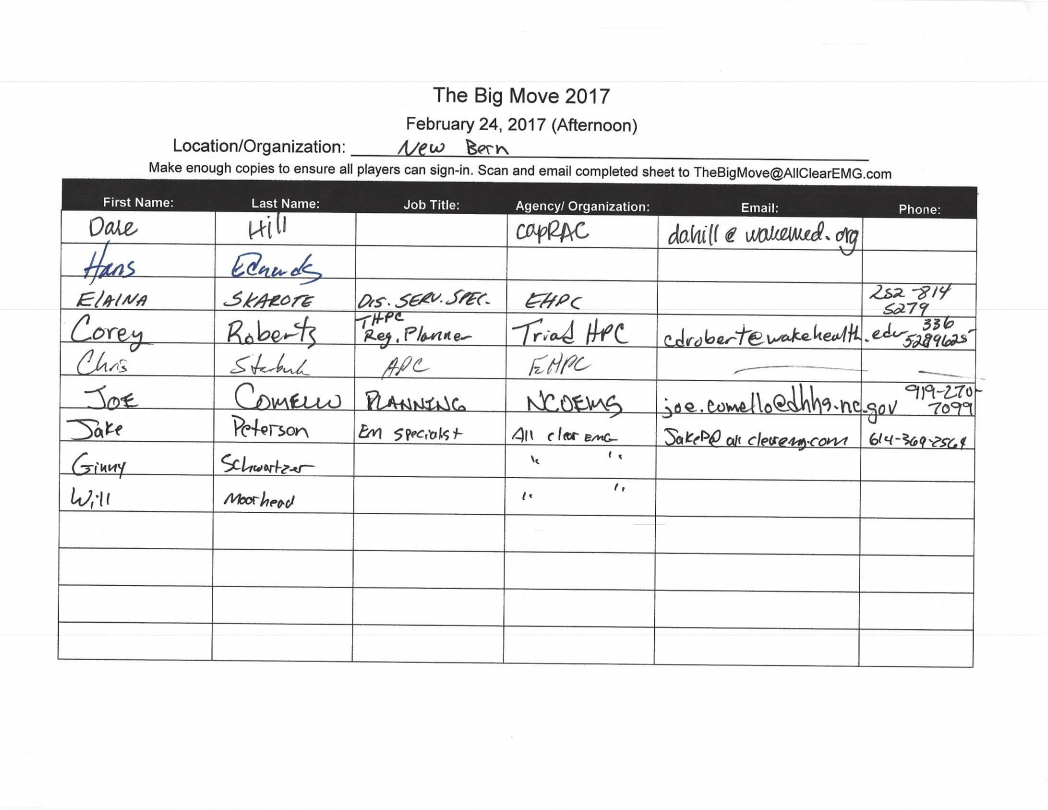 The Big Move 2017
February 24, 2017 (Afternoon)
Location/Organization: New Bern
Make enough copies to ensure all players can sign-in. Scan and email completed sheet to TheBigMove@AllClearEMG.com
First Name: Last Name: Job Title: Agency/ Organization: Email: Phone:
Dale Hill capRAC dahill@wakemed.org
Hans Edwards
ELAINA SKAROTE DIS. SERV. SPEC. EHPC 252-814
5279
Corey Roberts THPC
Reg. Planner Triad HPC cdrobert@wakehealth.edu 336
5289625
Chris APC EHPC
JOE COMELLO PLANNING NCOEMS joe.comello@dhhs.nc.gov 919-270-
7099
Jake Peterson Em Specialist All clear EMG JakeP@allclearemg.com 614-369-2564
Ginny Schwartzer " "
Will Moorhead " "